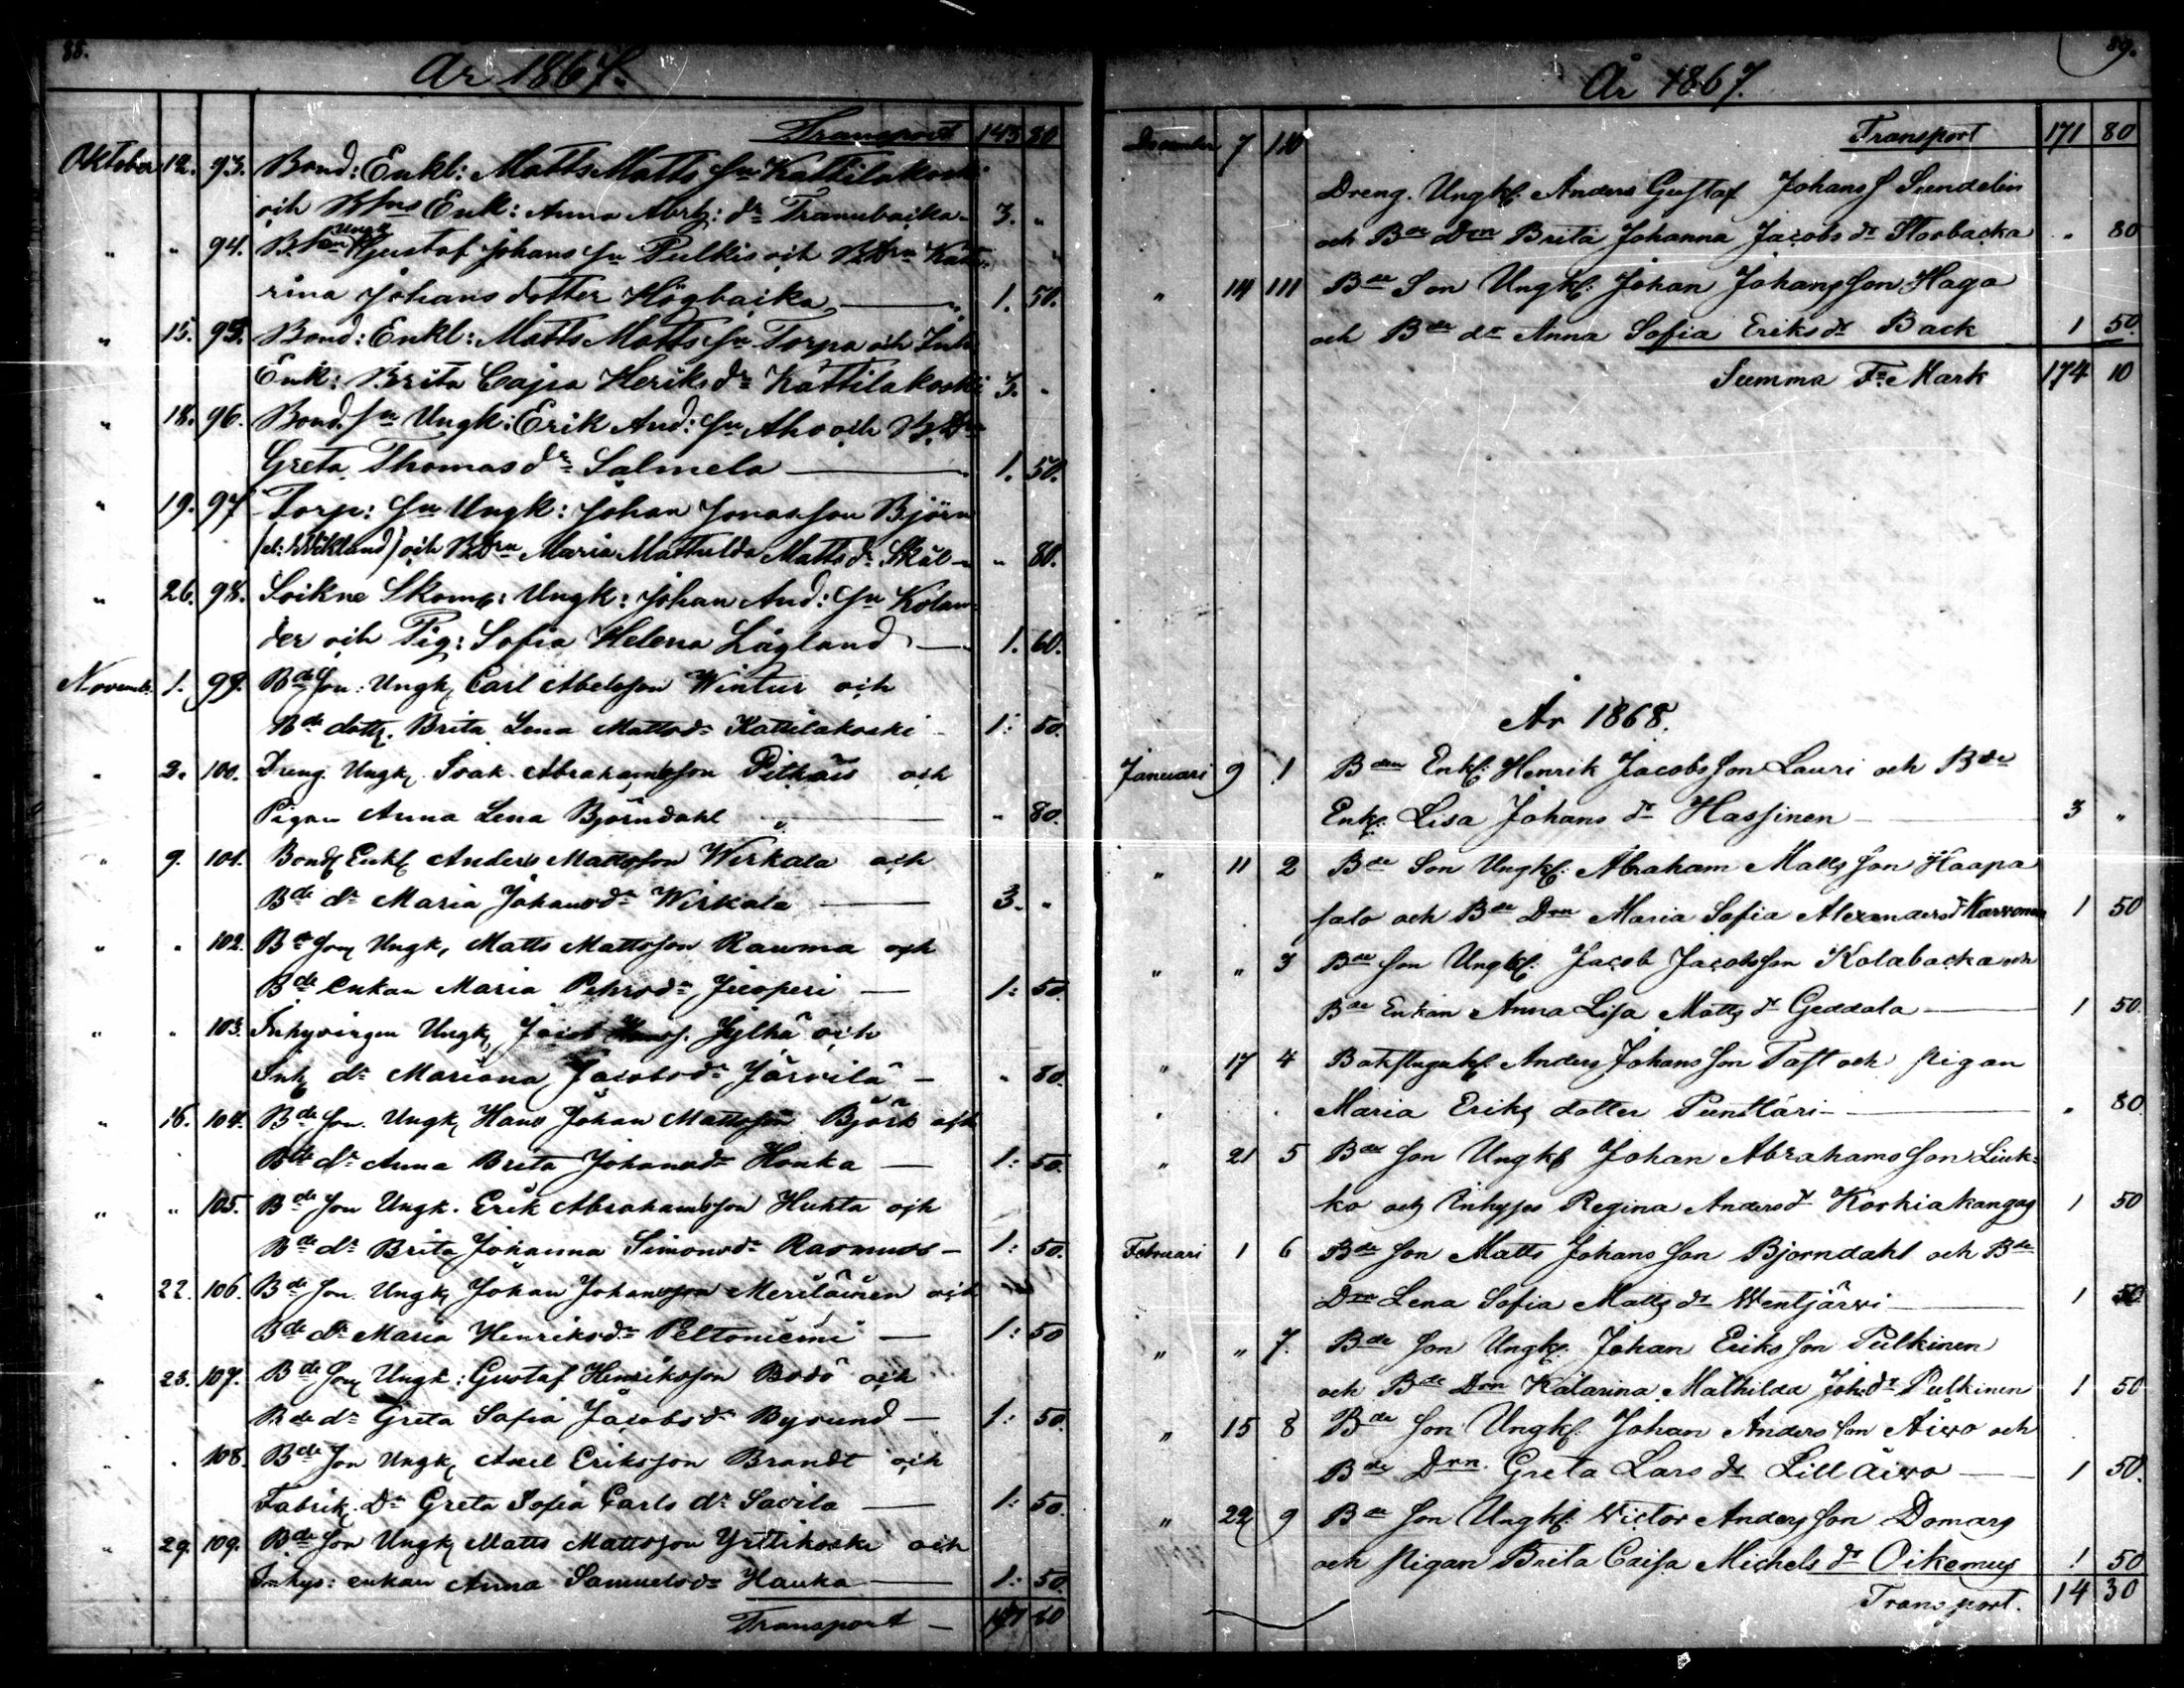 88.
År 1867.
Transport 143 80
Oktober 12. 93. Bond: Enkl: Matts Matts Sn Kattilakoski
och Bdns Enk: Anna Abrh: dr Tranubacka 3. "
" " 94. B. Son Ungk Gustaf Johans Sn Pulkis och B Drn Kata-
rina Johans dotter Högbacka 1. 50.
" 15. 95. Bond: Enkl: Matts Matts Sn Torpa och Inh
Enk: Brita Cajsa Heriks dr Kattilakoski 3. "
" 18. 96. Bond. Sn Ungk: Erik And: Sn Aho och B. Dr
Greta Thomas dr Salmela 1. 50.
" 19. 97 Torp: Sn Ungk: Johan Jonasson Björn
(el: Wiklund) och B Drn Maria Mathilda Matts dr Skäl " 80.
" 26. 98. Soikne Skom: Ungk: Johan And: Sn Kolan-
der och Pig: Sofia Helena Lågland 1. 60.
Novemb. 1. 99. Bde Son: Ungk Carl Abelsson Wintur och
Bde dott. Brita Lena Mattsdr Kattilakoski 1: 50.
" 2. 100. Dreng Ungk. Isak Abrahamsson Pitkäis och
Pigan Anna Lena Björndahl " 80.
" 9. 101. Bond Enkl Anders Mattsson Wirkala och
Bde dr Maria Johansdr Wirkala 3. "
" " 102. Bde Son Ungk, Matts Mattsson Rauma och
Bde enkan Maria Pehrsdr Jicoperi 1: 50.
" " 103. Inhysingen Ungk Jacob Hanss. Jylhä och
Inh dr Mariana Jacobsdr Järvilä " 80.
" 16. 104. Bde Son. Ungk Hans Johan Mattsson Björk och
Bde dr Anna Brita Johansdr Honka 1: 50.
" " 105. Bde Son Ungk. Erik Abrahamsson Huhta och
Bde dr Brita Johanna Simonsdr Rasmus 1: 50.
" 22. 106. Bde Son. Ungk Johan Johansson Meriläinen och
Bde dr Maria Henriksdr Peltoniemi 1: 50
" 23. 107. Bde Son Ungk: Gustaf Henriksson Bodö och
Bde dr Greta Sofia Jacobsdr Bysund 1: 50.
" " 108. Bde Son Ungk Axel Eriksson Brandt och
Fabrik Dr Greta Sofia Carls dr Savila 1: 50.
" 29. 109. Bde Son Ungk Matts Mattsson Yrttikoski och
Inhys: enkan Anna Samuelsdr Hauka 1: 50.
Transport 171 80
89.
År 1867.
December 7 110 Transport 171 80
Dreng. Ungk: Anders Gustaf Johans S Sundelin
och Bde Drn Brita Johanna Jacobs dr Storbacka " 80
" 14 111 Bde Son Ungk: Johan Johansson Haga
och Bde dr Anna Sofia Eriks dr Back 1 50
Summa Fr Mark 174 10
År 1868.
Januari 9 1 Bden Enkl: Henrik Jacobsson Lauri och Bde
Enk: Lisa Johans dr Hassinen 3 "
" 11 2 Bde Son Ungk: Abraham Mattsson Haapa
salo och Bde Drn Maria Sofia Alexandersdr Karvonen 1 50
" " 3 Bde Son Ungk: Jacob Jacobsson Kolabacka och
Bde Enkan Anna Lisa Matts dr Geddala 1 50
" 17 4 Anders Johansson Tast och pigan
Maria Eriks dotter Puntläri " 80
" 21 5 Bde Son Ungk: Johan Abrahamsson Liuk-
ko och Inhyses Regina Anders dr Koskiakangas 1 50
Februari 1 6 Bde Son Matts Johansson Bjorndahl och Bde
Drn Lena Sofia Matts dr Wentjärvi 1 50
" " 7. Bde Son Ungk: Johan Eriksson Pulkinen
och Bde Drn Katarina Mathilda Joh.dr Pulkinen 1 50
" 15 8 Bde Son Ungk: Johan Andersson Äivo och
Bde Drn. Greta Lars dr Lill Äivo 1 50.
" 22 9 Bde Son Ungk: Victor Andersson Domars
och pigan Brita Caisa Michels dr Oikemus 1 50
Transport. 14 30